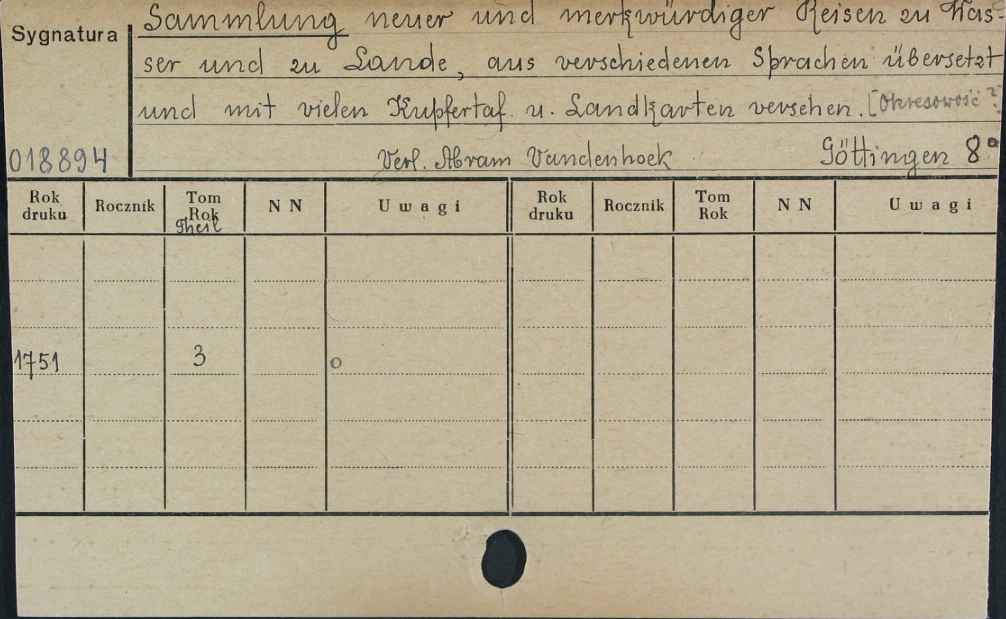 Sygnatura
Sammlung neuer und merkwürdiger Reisen zu Was-
ser und zu Lande, aus verschiedenen Sprachen übersetzt
und mit vielen Kupfertaf. u. Landkarten versehen. [Okresowość?
018894
Verl. Abram Vandenhoek Göttingen 8°
Rok druku Rocznik Tom Rok Theil N N Uwagi Rok druku Rocznik Tom Rok N N Uwagi
1751 3 o